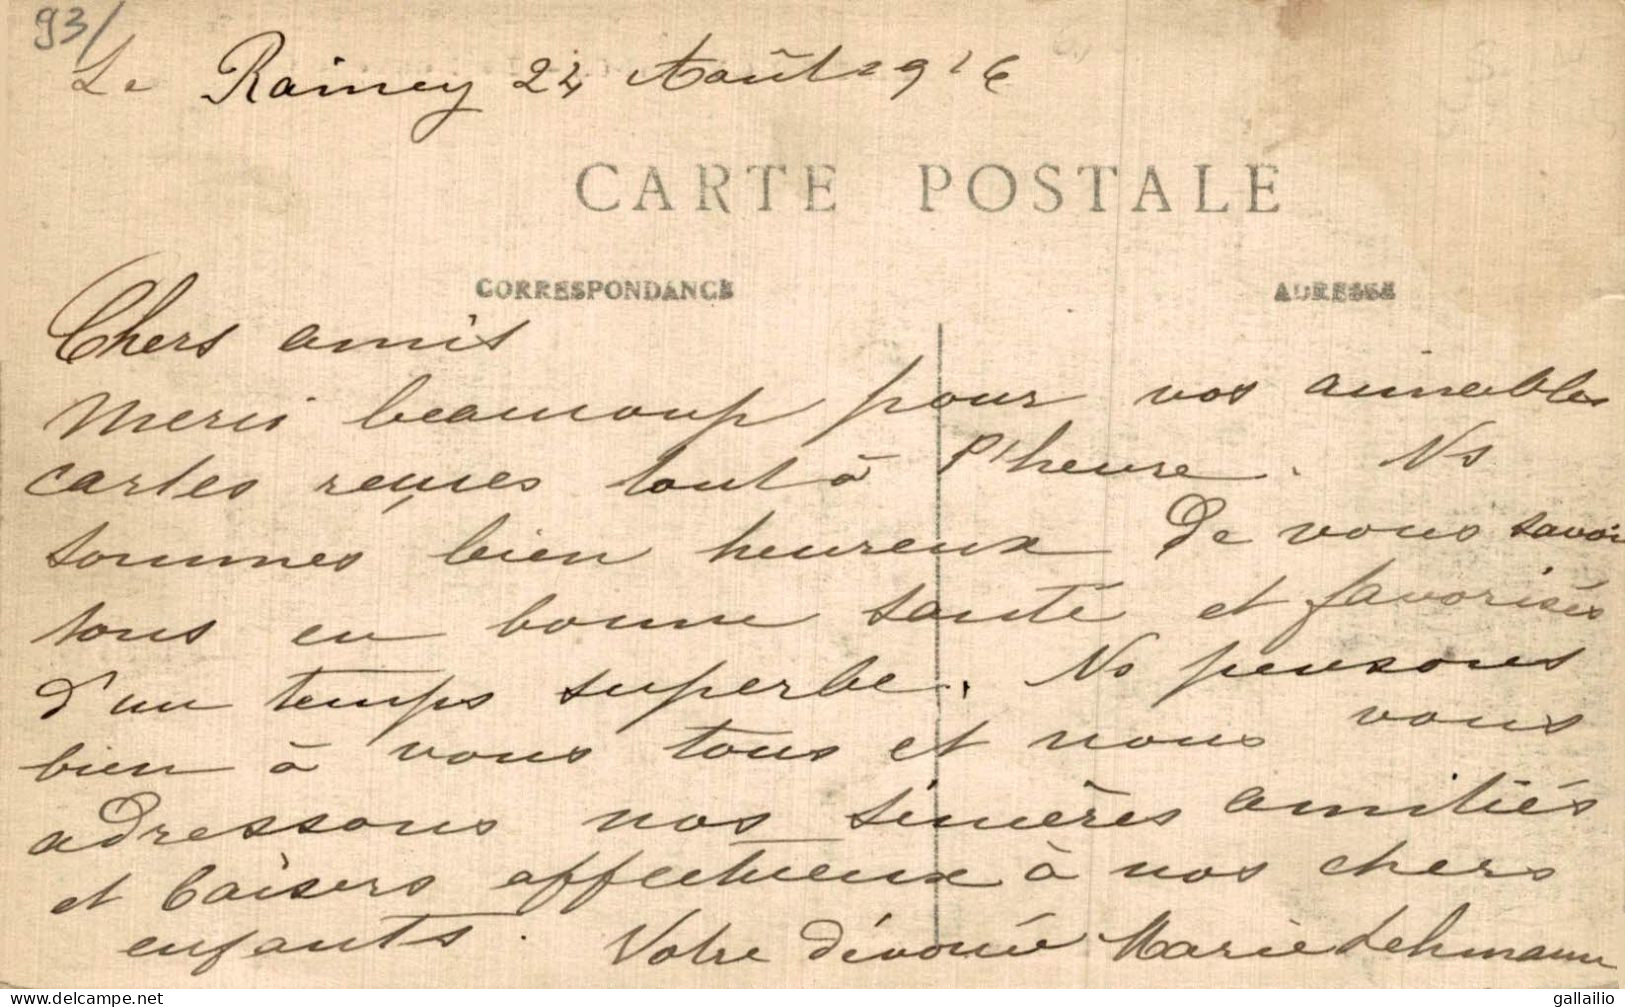 93/
Le Raincy 24 Août 1916
CARTE POSTALE
CORRESPONDANCE
ADRESSE
Chers amis
Merci beaucoup pour vos aimables
cartes reçues tout à l'heure. Ns
sommes bien heureux de vous savoir
tous en bonne santé et favorisés
d'un temps superbe. Ns pensons
bien à vous tous et nous vous
adressons nos sincères amitiés
et baisers affectueux à nos chers
enfants. Votre dévouée Marie Lehmann
www.delcampe.net
gallailio